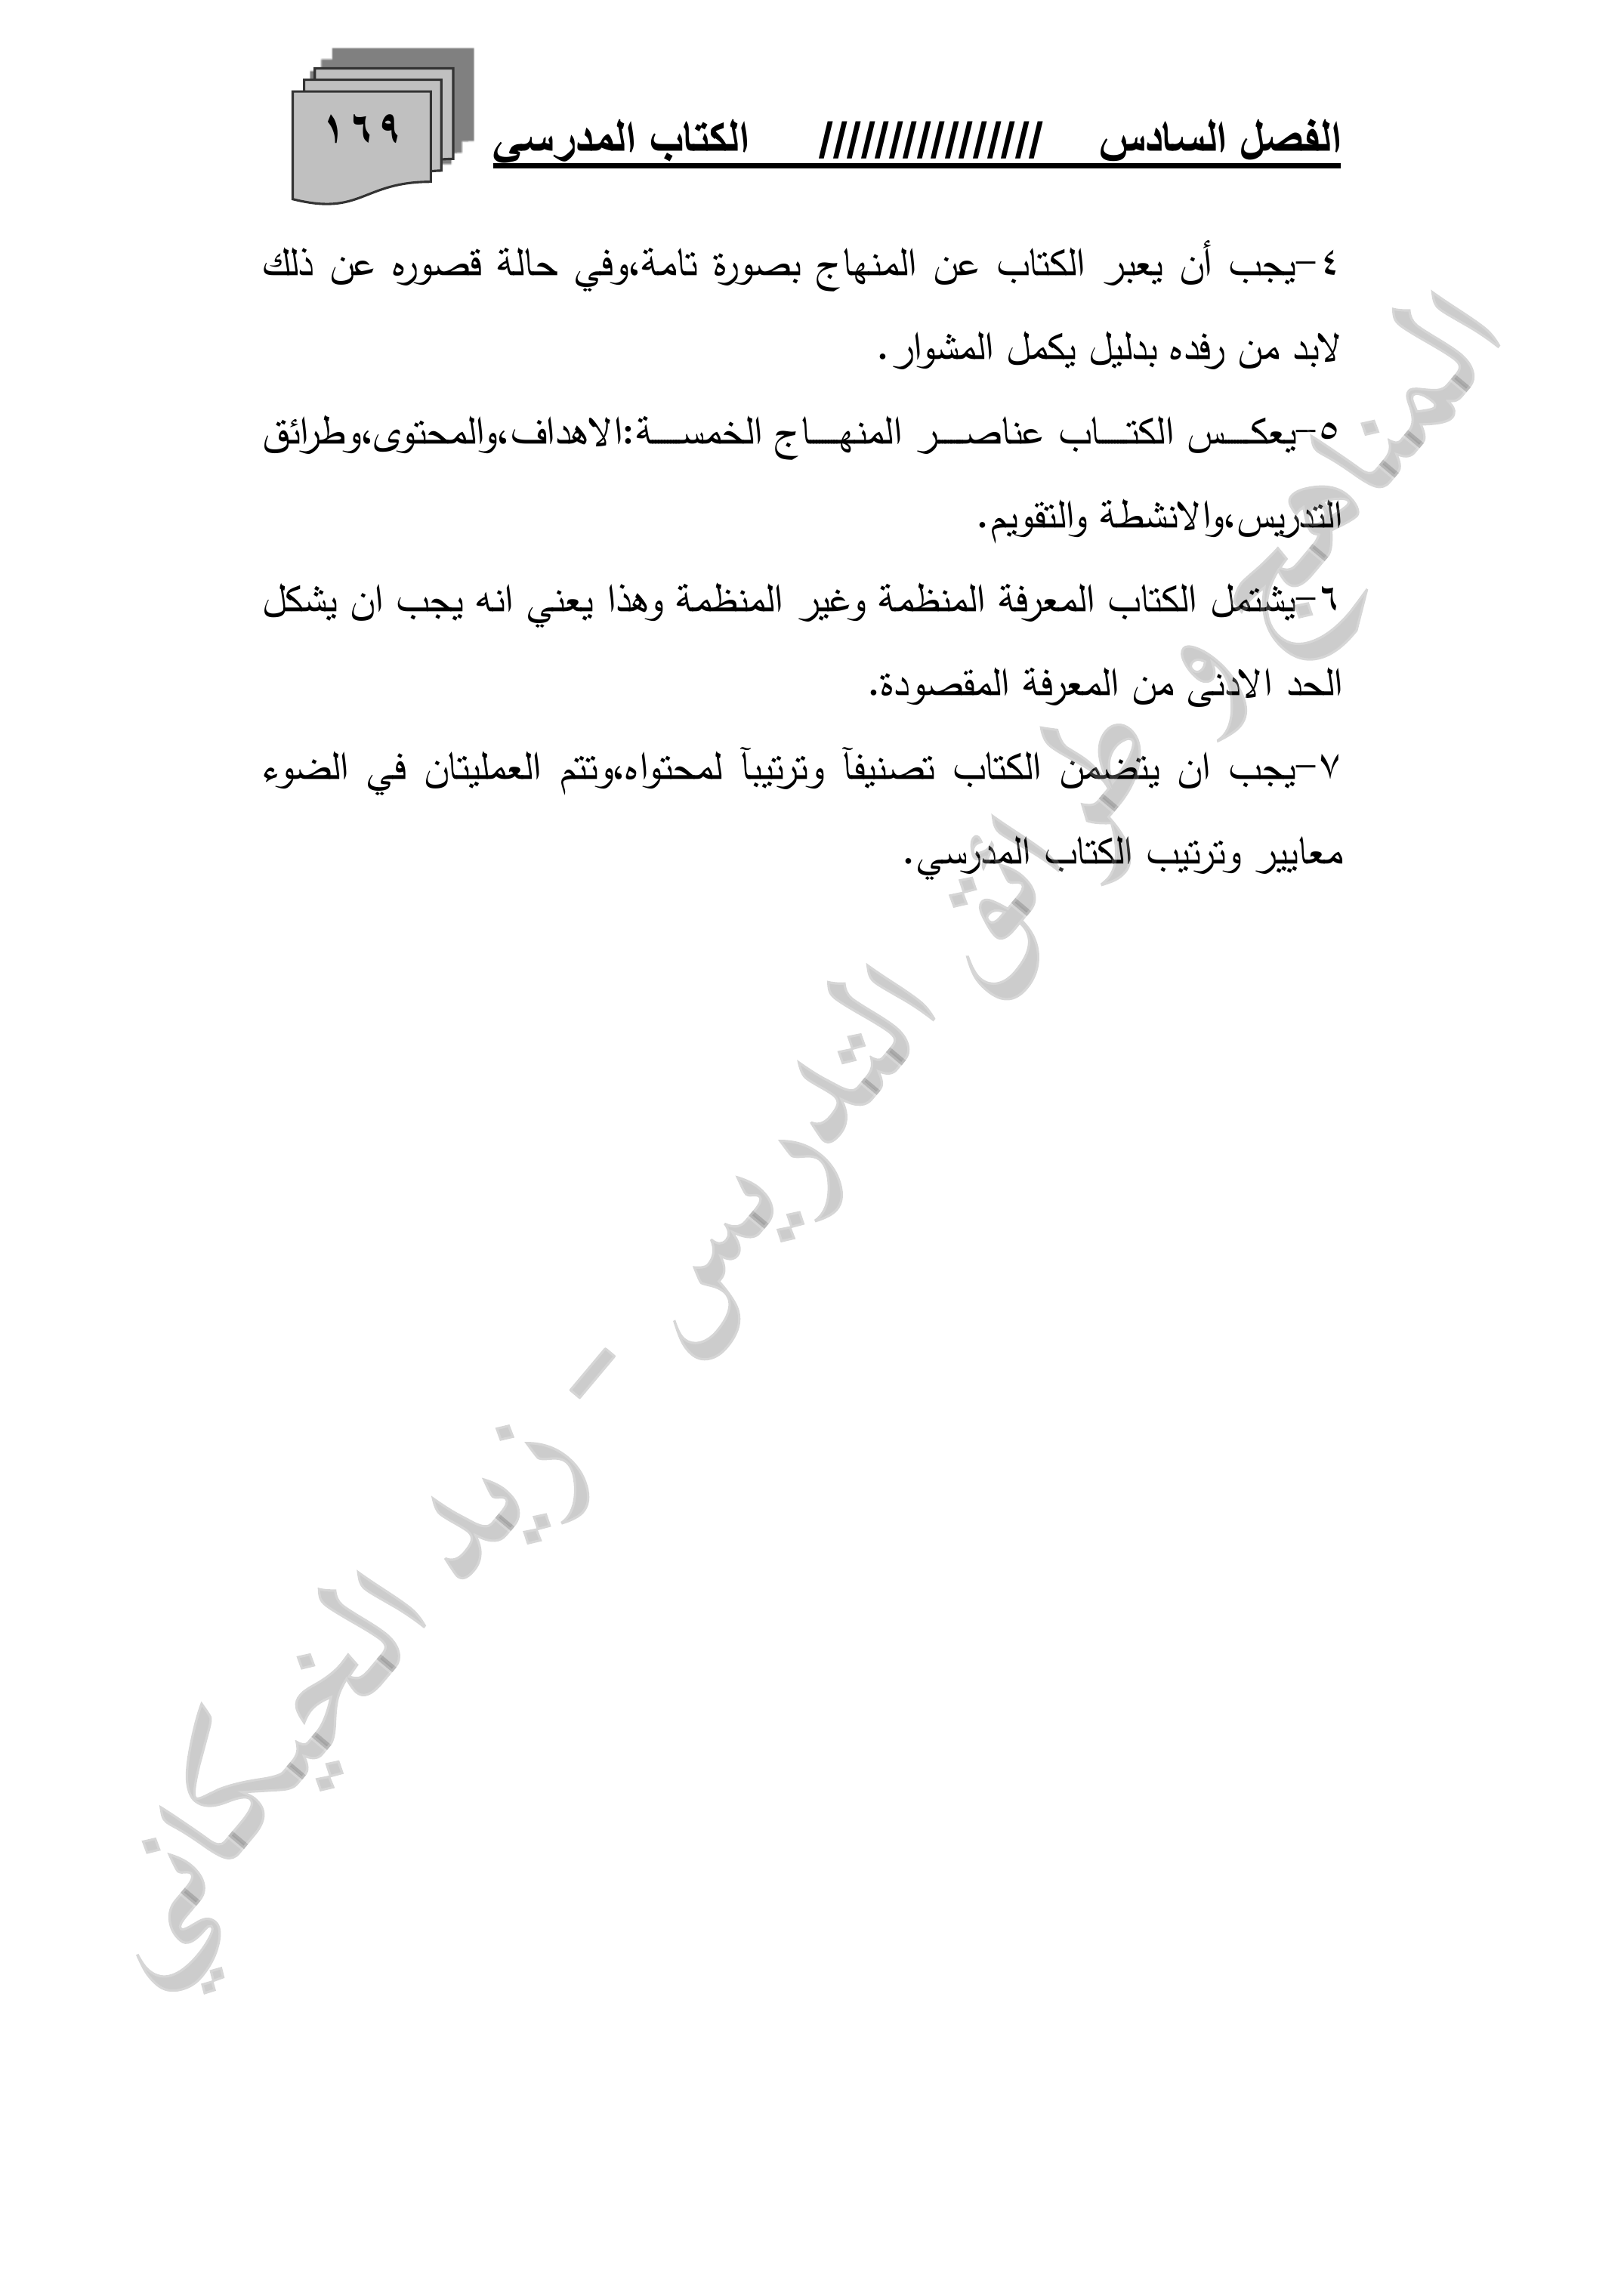 الفصل السادس //////////////// الكتاب المدرسي
١٦٩
٤-يجب أن يعبر الكتاب عن المنهاج بصورة تامة،وفي حالة قصوره عن ذلك
لابد من رفده بدليل يكمل المشوار.
٥-يعكـــس الكتـــاب عناصـــر المنهـــاج الخمســـة:الاهداف،والمحتوى،وطرائق
التدريس،والانشطة والتقويم.
٦-يشتمل الكتاب المعرفة المنظمة وغير المنظمة وهذا يعني انه يجب ان يشكل
الحد الادنى من المعرفة المقصودة.
٧-يجب ان يتضمن الكتاب تصنيفآ وترتيبآ لمحتواه،وتتم العمليتان في الضوء
معايير وترتيب الكتاب المدرسي.
المناهج و طرائق التدريس - زيد الخيكاني